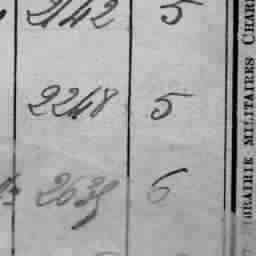 2142 5
2248 5
2635 6
BRAIRIE MILITAIRES CHAR